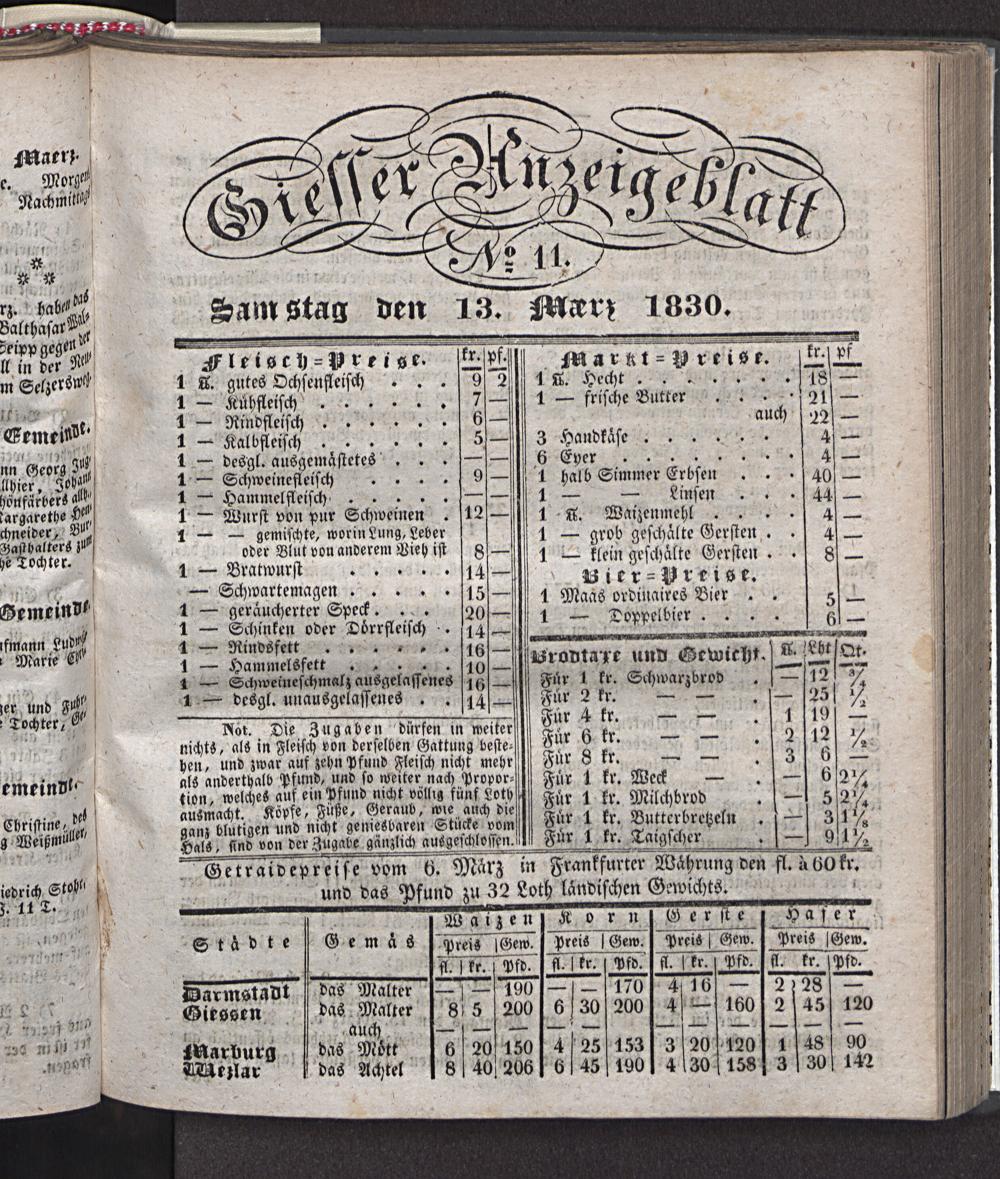 Maerz.
Morgen
Nachmittag
rz. haben das
Balthasar Wal-
Seipp gegen der
ll in der Neu-
m Selzersweg.
Gemeinde.
nn Georg Jug-
llhier, Johann
hönfärbers allh.
argarethe Hen
chneider, Bur-
Gasthalters zum
he Tochter.
Gemeinde.
ufmann Ludwig
Marie
zer und Fuhr-
e Tochter,
emeinde.
Christine, des
g Weißmüller,
iedrich Stohr,
J. 11 T.
Giesser Anzeigeblatt
No 11.
Samstag den 13. Mærz 1830.
Fleisch=Preise. kr. pf.
1 ℔. gutes Ochsenfleisch . . . 9 2
1 — Kühfleisch . . . . . 7 —
1 — Rindfleisch . . . . . 6 —
1 — Kalbfleisch . . . . . 5 —
1 — desgl. ausgemästetes . . . — —
1 — Schweinefleisch . . . . 9 —
1 — Hammelfleisch . . . . . — —
1 — Wurst von pur Schweinen . 12 —
1 — — gemischte, worin Lung, Leber
oder Blut von anderem Vieh ist 8 —
1 — Bratwurst . . . . . 14 —
— Schwartemagen . . . . 15 —
1 — geräucherter Speck . . . 20 —
1 — Schinken oder Dörrfleisch . 14 —
1 — Rindsfett . . . . . 16 —
1 — Hammelsfett . . . . 10 —
1 — Schweineschmalz ausgelassenes 16 —
1 — desgl. unausgelassenes . . 14 —
Not. Die Zugaben dürfen in weiter
nichts, als in Fleisch von derselben Gattung beste-
hen, und zwar auf zehn Pfund Fleisch nicht mehr
als anderthalb Pfund, und so weiter nach Propor-
tion, welches auf ein Pfund nicht völlig fünf Loth
ausmacht. Köpfe, Füße, Geraub, wie auch die
ganz blutigen und nicht geniesbaren Stücke vom
Hals, sind von der Zugabe gänzlich ausgeschlossen.
Markt=Preise. kr. pf
1 ℔. Hecht . . . . . . . 18 —
1 — frische Butter . . . . . 21 —
auch 22 —
3 Handkäse . . . . . . 4 —
6 Eyer . . . . . . . 4 —
1 halb Simmer Erbsen . . . 40 —
1 — — Linsen . . . 44 —
1 ℔. Waizenmehl . . . . 4 —
1 — grob geschälte Gersten . . 4 —
1 — klein geschälte Gersten . . 8 —
Bier=Preise.
1 Maas ordinaires Bier . . 5 —
1 — Doppelbier . . . . 6 —
Brodtaxe und Gewicht. ℔. Lht Qt.
Für 1 kr. Schwarzbrod . — 12 ¾
Für 2 kr. — — . — 25 ½
Für 4 kr. — — . 1 19 —
Für 6 kr. — — . 2 12 ½
Für 8 kr. — — . 3 6 —
Für 1 kr. Weck — . — 6 2¼
Für 1 kr. Milchbrod . — 5 2¼
Für 1 kr. Butterbretzeln . — 3 1⅛
Für 1 kr. Taigscher . — 9 1½
Getraidepreise vom 6. März in Frankfurter Währung den fl. à 60 kr.
und das Pfund zu 32 Loth ländischen Gewichts.
Städte Gemäs Waizen Korn Gerste Hafer
Preis Gew. Preis Gew. Preis Gew. Preis Gew.
fl. kr. Pfd. fl. kr. Pfd. fl. kr. Pfd. fl. kr. Pfd.
Darmstadt das Malter — — 190 — — 170 4 16 — 2 28 —
Giessen das Malter 8 5 200 6 30 200 4 — 160 2 45 120
auch — — — — — — — — — — — —
Marburg das Mött 6 20 150 4 25 153 3 20 120 1 48 90
Wezlar das Achtel 8 40 206 6 45 190 4 30 158 3 30 142